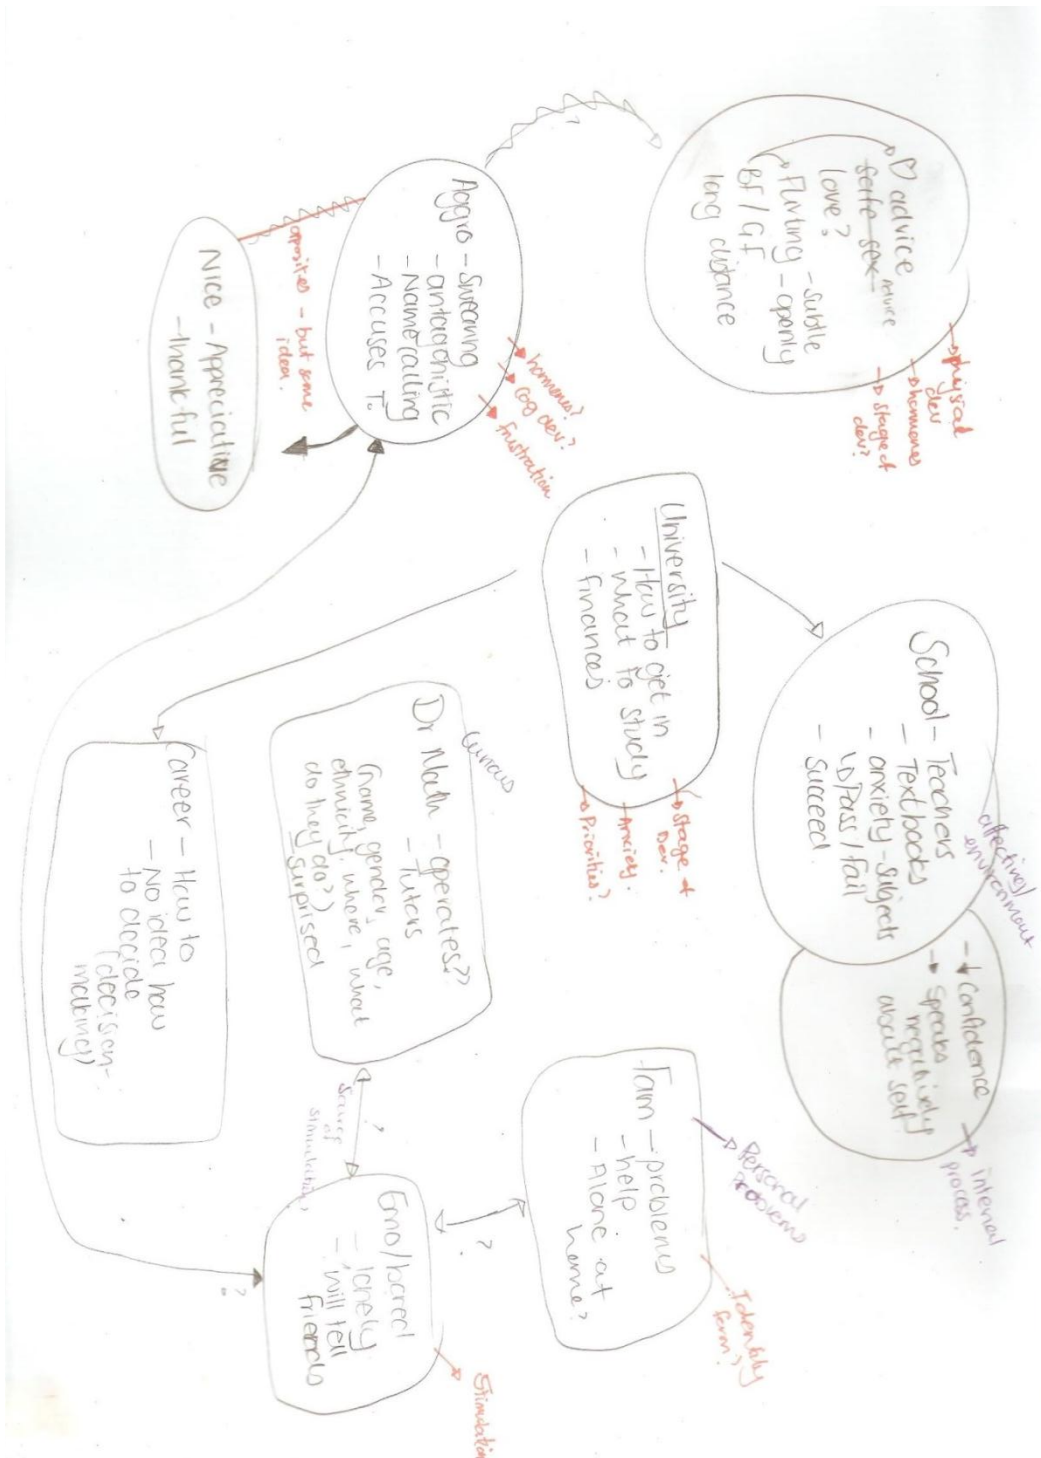 ♡ advice
safe sex advice
love?
Flirting - subtle
- openly
BF/GF
long distance
→ physical
dev
→ hormones
→ stage of
dev?
Aggro - Swearing
- antagonistic
- Name calling
- Accuses T.
→ hormones?
→ cog dev?
→ frustration
opposites - but same
idea.
Nice - Appreciative
- thankful
University
- How to get in
- what to study
- finances
→ Stage of
Dev.
→ Anxiety.
→ Priorities?
School - Teachers
- Textbooks
- anxiety - subjects
↳ Pass / fail
- Succeed.
affective /
environment
- ↓ Confidence
→ Speaks
negatively
about self
→ internal
process.
Curious
Dr Math - operates??
- Tutors
(name, gender, age,
ethnicity, where, what
do they do?)
- surprised
Career - How to
- No idea how
to decide
(decision-
making)
?
source
of
stimulation
Fam - problems
- help
- Alone at
home?
→ Personal
problems
→ Identity
form?
?
Emo/bored
- lonely
- will tell
friends
→ Stimulation
?
?